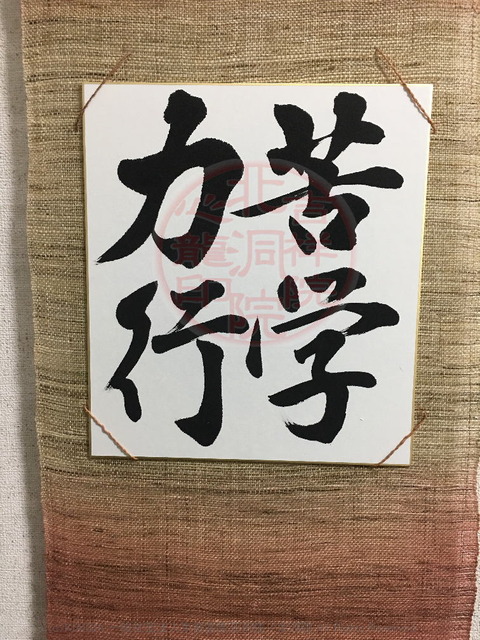 苦学
力行